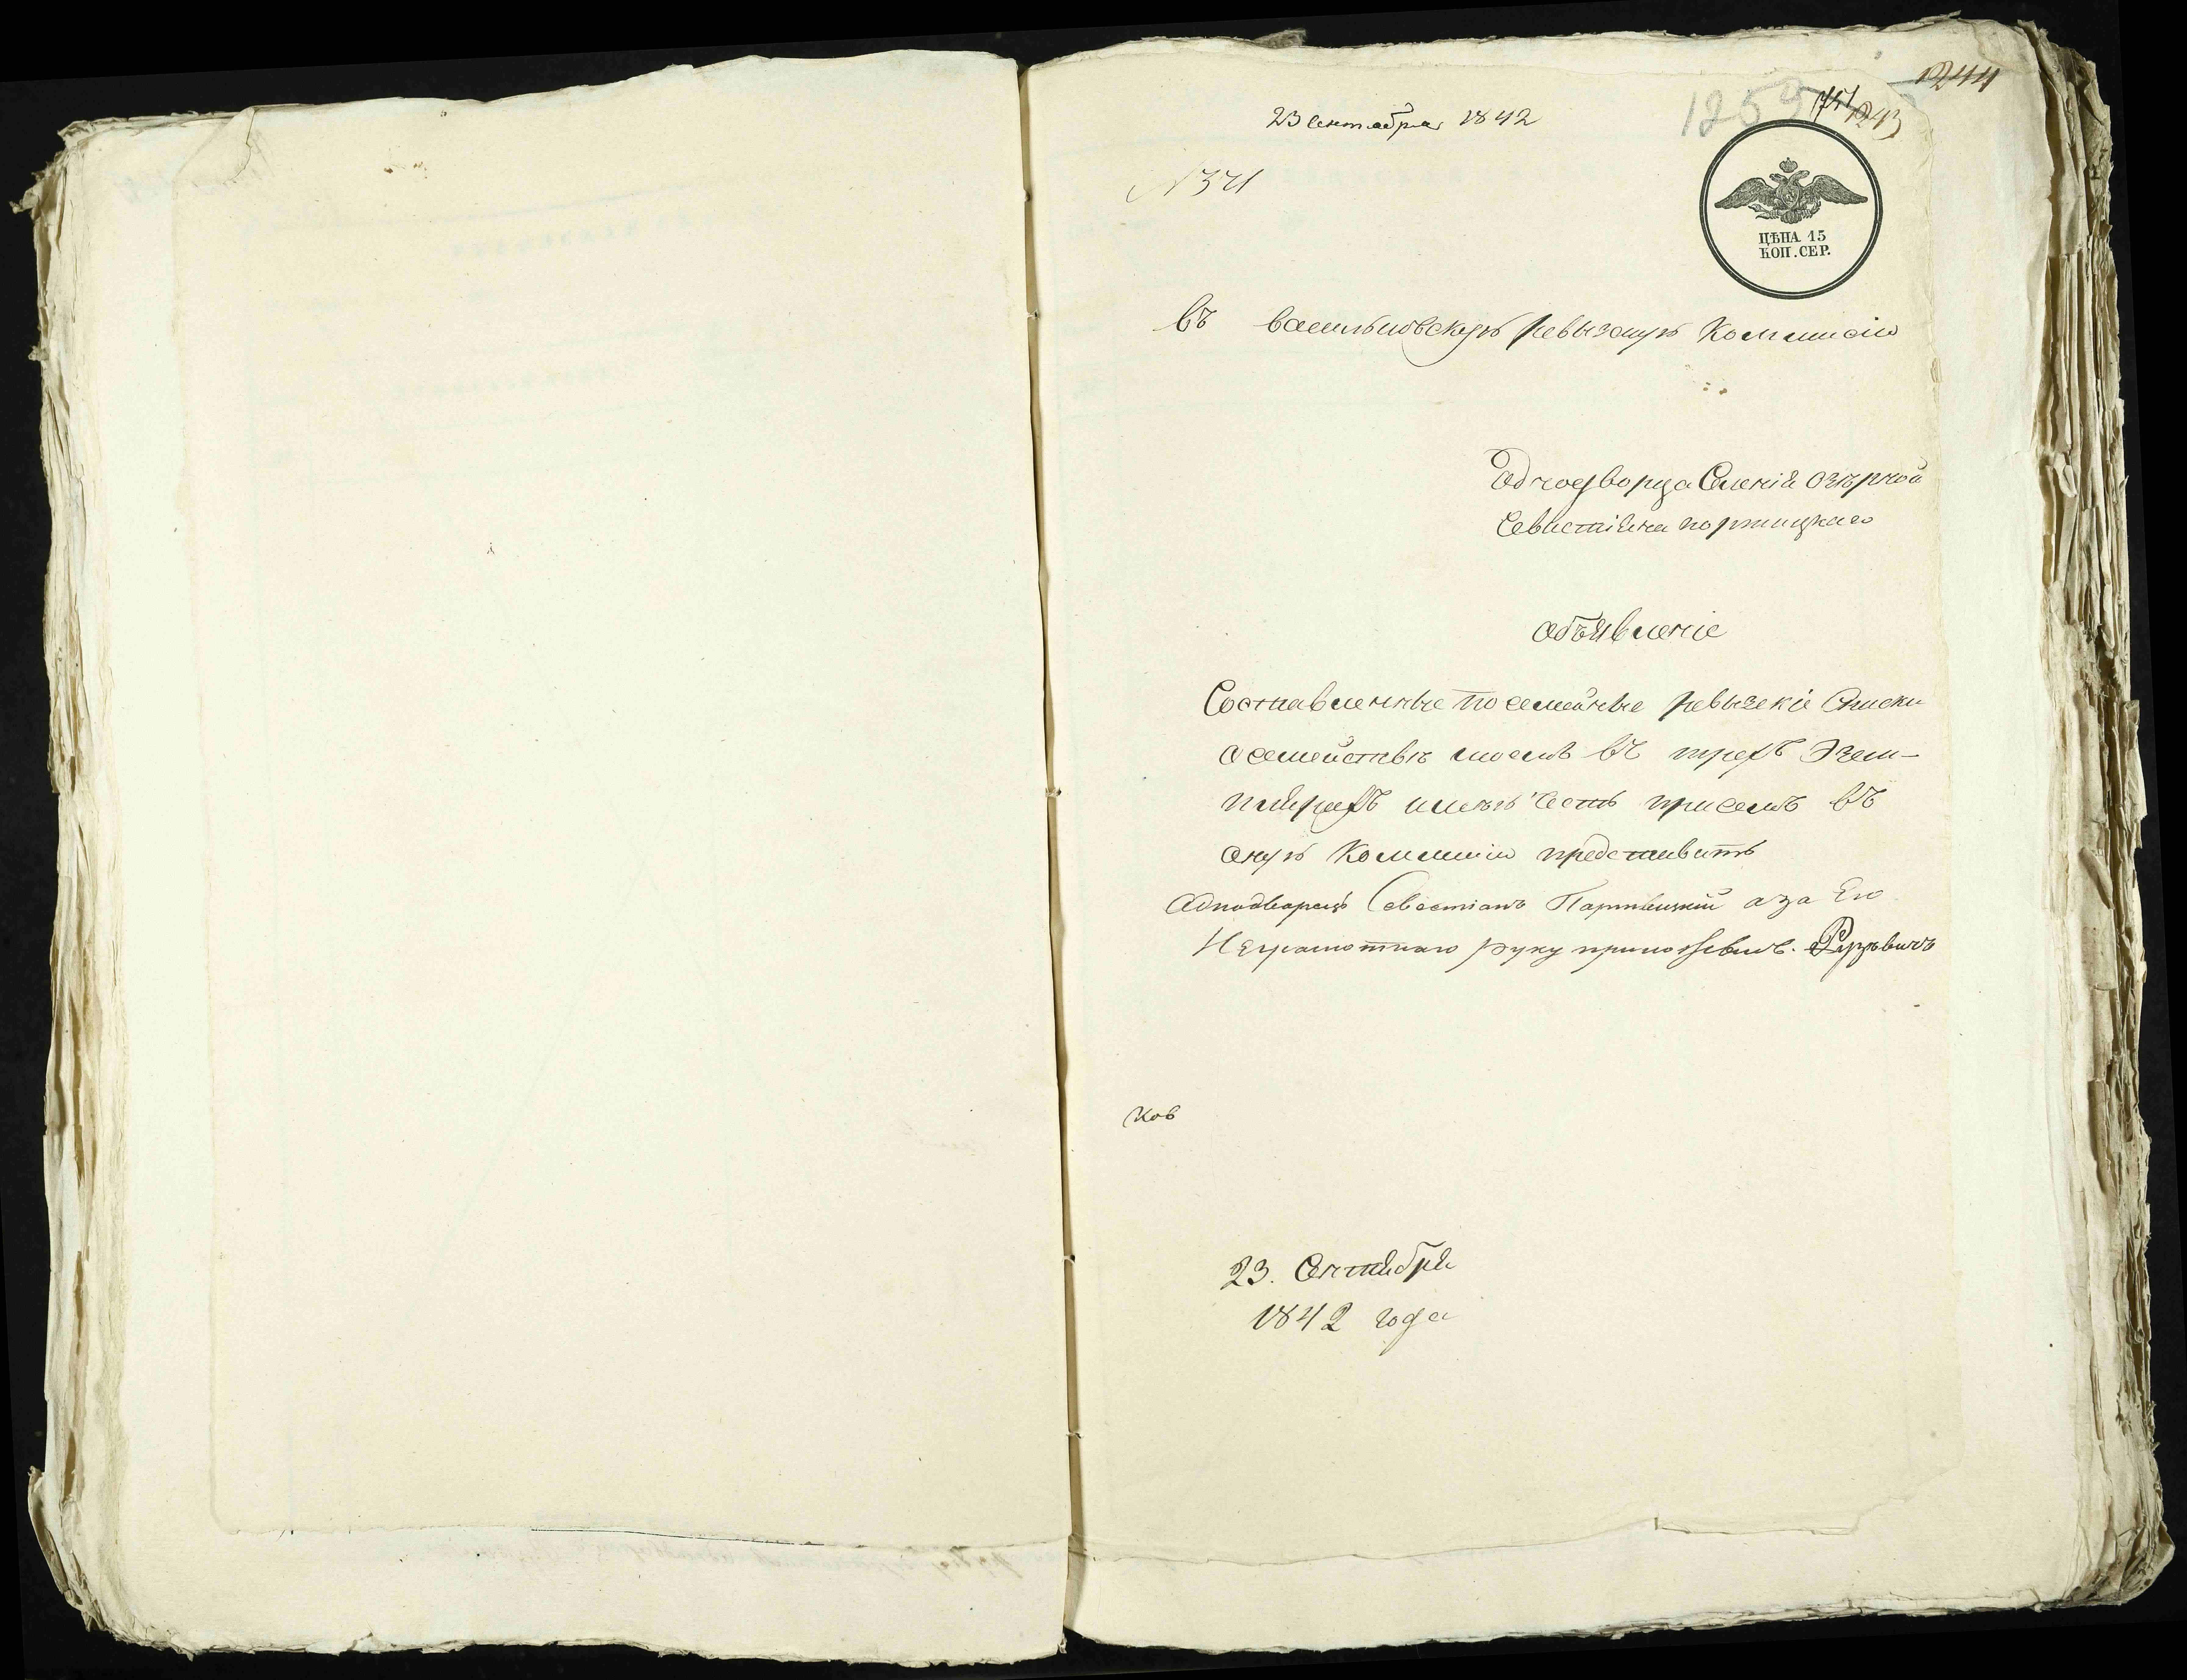 1244
1259 1751 1243
23 Сентября 1842
N 371
ЦѢНА 15
КОП. СЕР.
въ васильковскую ревызскую Коммисію
Однодворца Сѣленія озѣрной
Севастіяна портицкаго
объявленіе
Составленные посемейные ревызскіе Списки
о семействѣ моемъ въ трехъ Эзем-
плярахъ имѣю честь присемъ въ
оную Коммисію представить
Аднодворецъ Севостіанъ Партицкий а за Его
Неграмотнаго руку приложевъ
ков
23. Сентября
1842 года